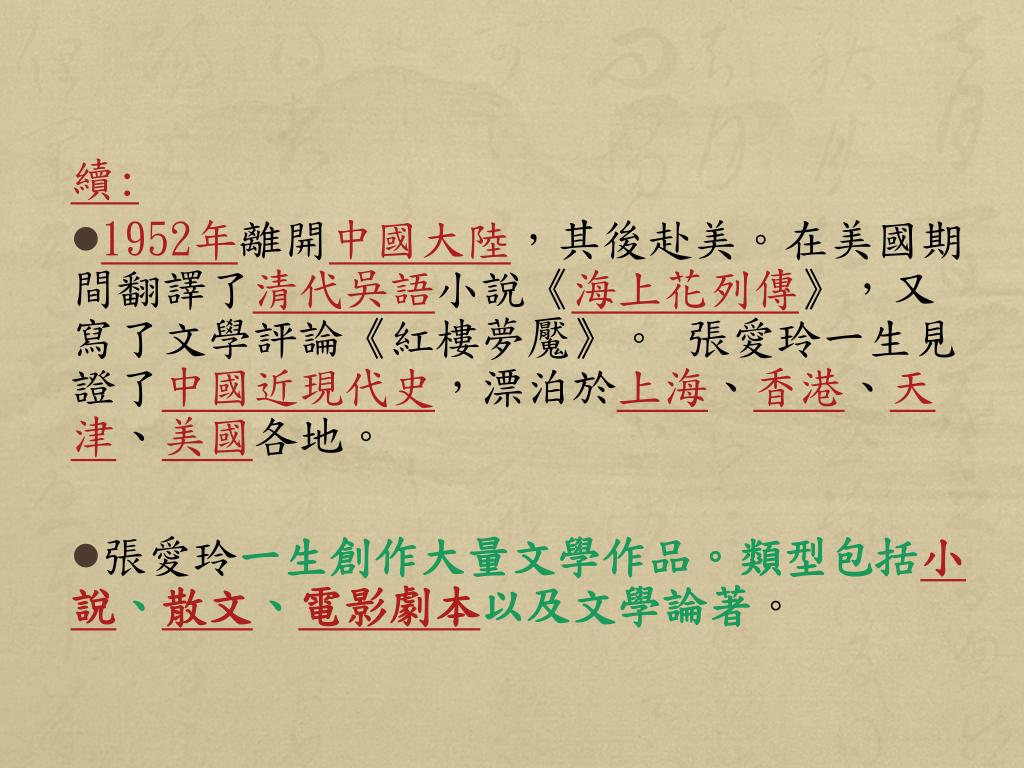 續:
●1952年離開中國大陸，其後赴美。在美國期
間翻譯了清代吳語小說《海上花列傳》，又
寫了文學評論《紅樓夢魘》。 張愛玲一生見
證了中國近現代史，漂泊於上海、香港、天
津、美國各地。
●張愛玲一生創作大量文學作品。類型包括小
說、散文、電影劇本以及文學論著。